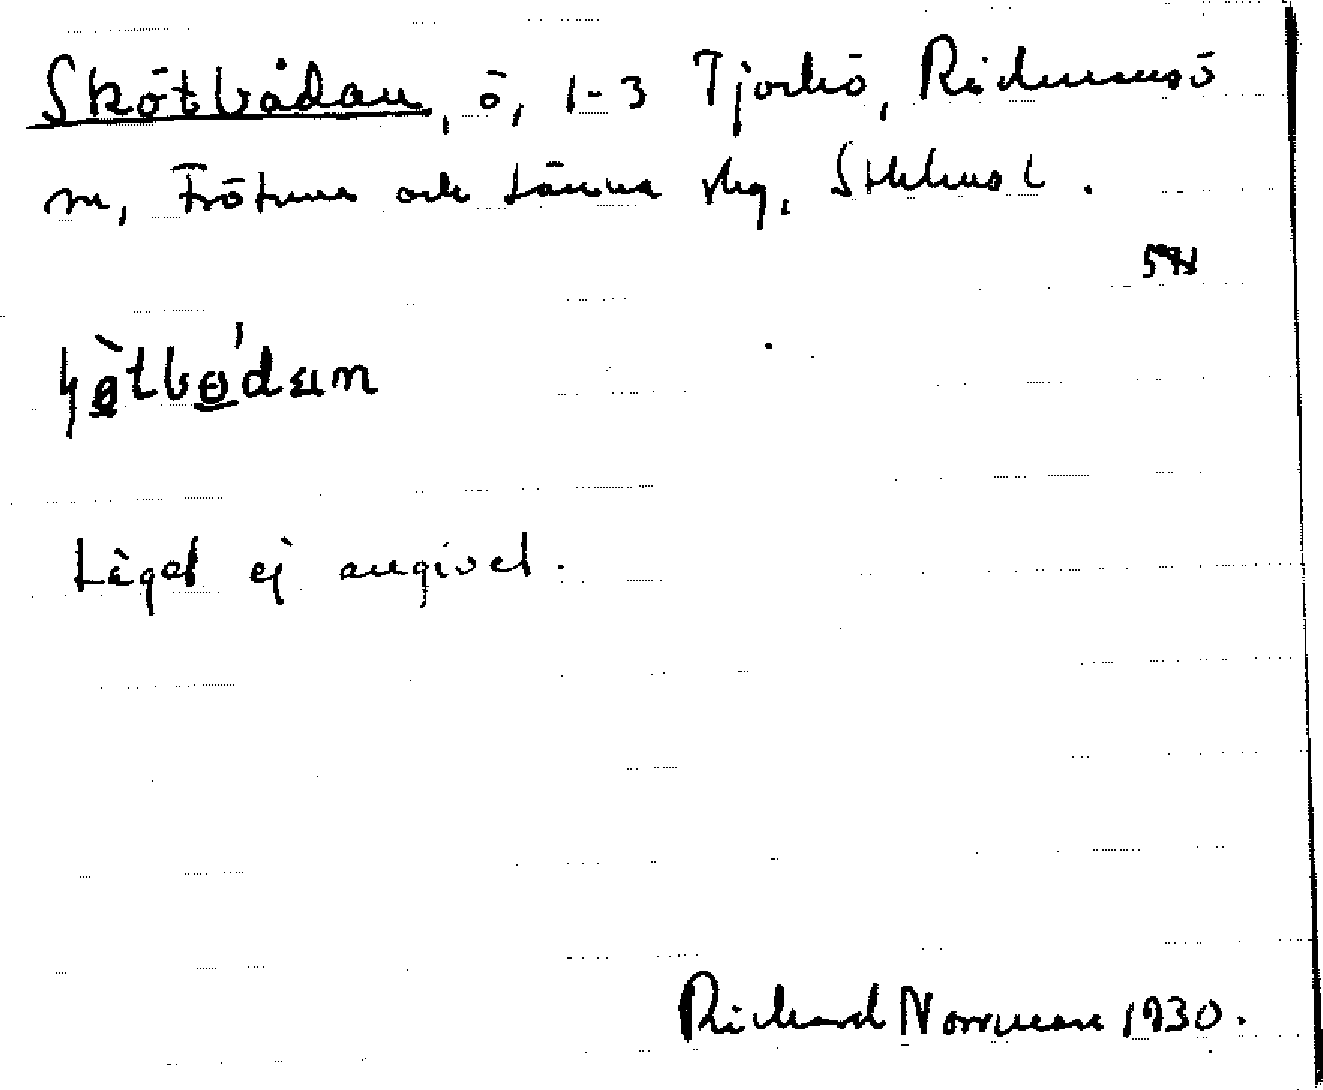 Skötbådan, ö, 1-3 Tjockö, Rådmansö
sn, Frötuna och Länna skg, Sthlms l.
Läget ej angivet.
Rickard Norrman 1930.